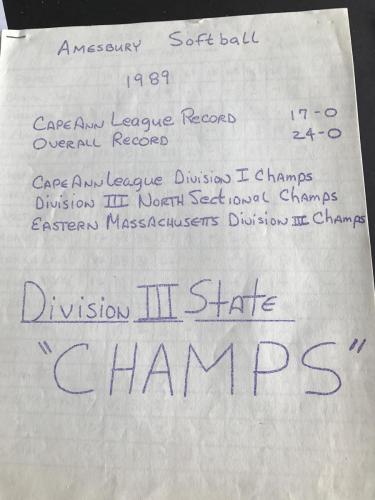 Amesbury Softball
1989
Cape Ann League Record 17-0
Overall Record 24-0
Cape Ann League Division I Champs
Division III North Sectional Champs
Eastern Massachusetts Division III Champs
Division III State
"CHAMPS"